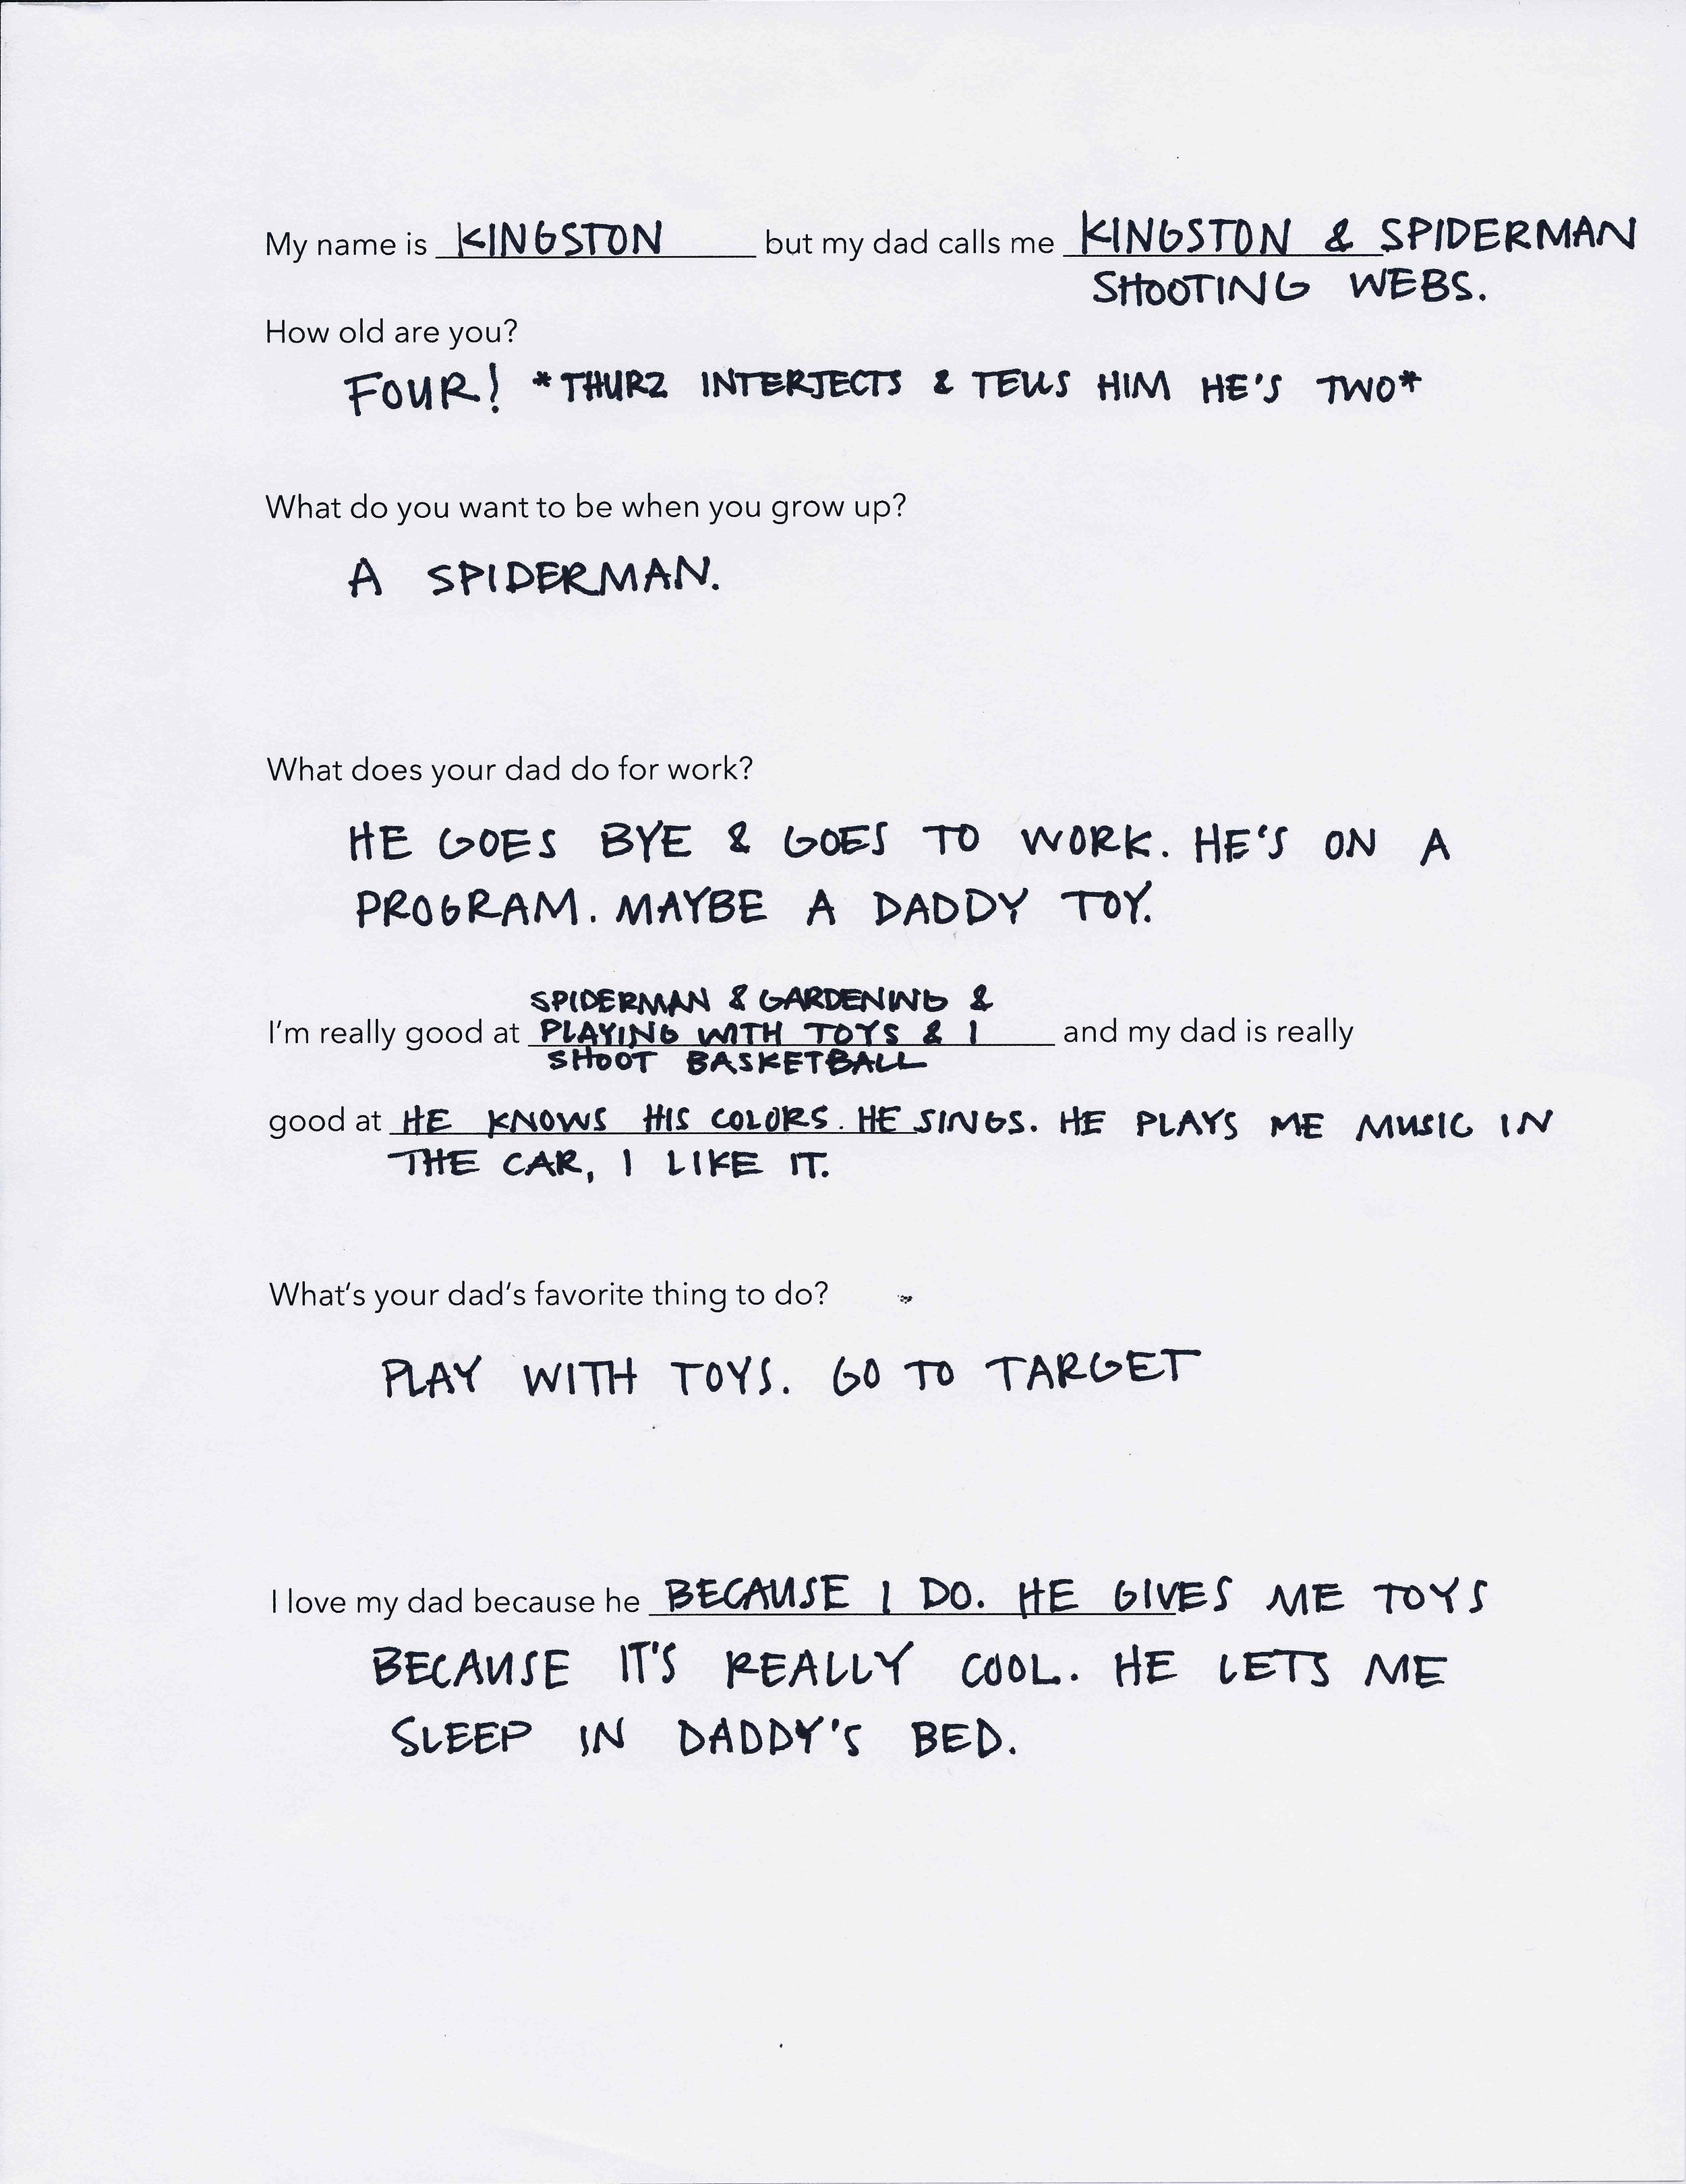 My name is KINGSTON but my dad calls me KINGSTON & SPIDERMAN
SHOOTING WEBS.
How old are you?
FOUR! *THURZ INTERJECTS & TELLS HIM HE'S TWO*
What do you want to be when you grow up?
A SPIDERMAN.
What does your dad do for work?
HE GOES BYE & GOES TO WORK. HE'S ON A
PROGRAM. MAYBE A DADDY TOY.
SPIDERMAN & GARDENING &
I'm really good at PLAYING WITH TOYS & I and my dad is really
SHOOT BASKETBALL
good at HE KNOWS HIS COLORS. HE SINGS. HE PLAYS ME MUSIC IN
THE CAR, I LIKE IT.
What's your dad's favorite thing to do?
PLAY WITH TOYS. GO TO TARGET
I love my dad because he BECAUSE I DO. HE GIVES ME TOYS
BECAUSE IT'S REALLY COOL. HE LETS ME
SLEEP IN DADDY'S BED.